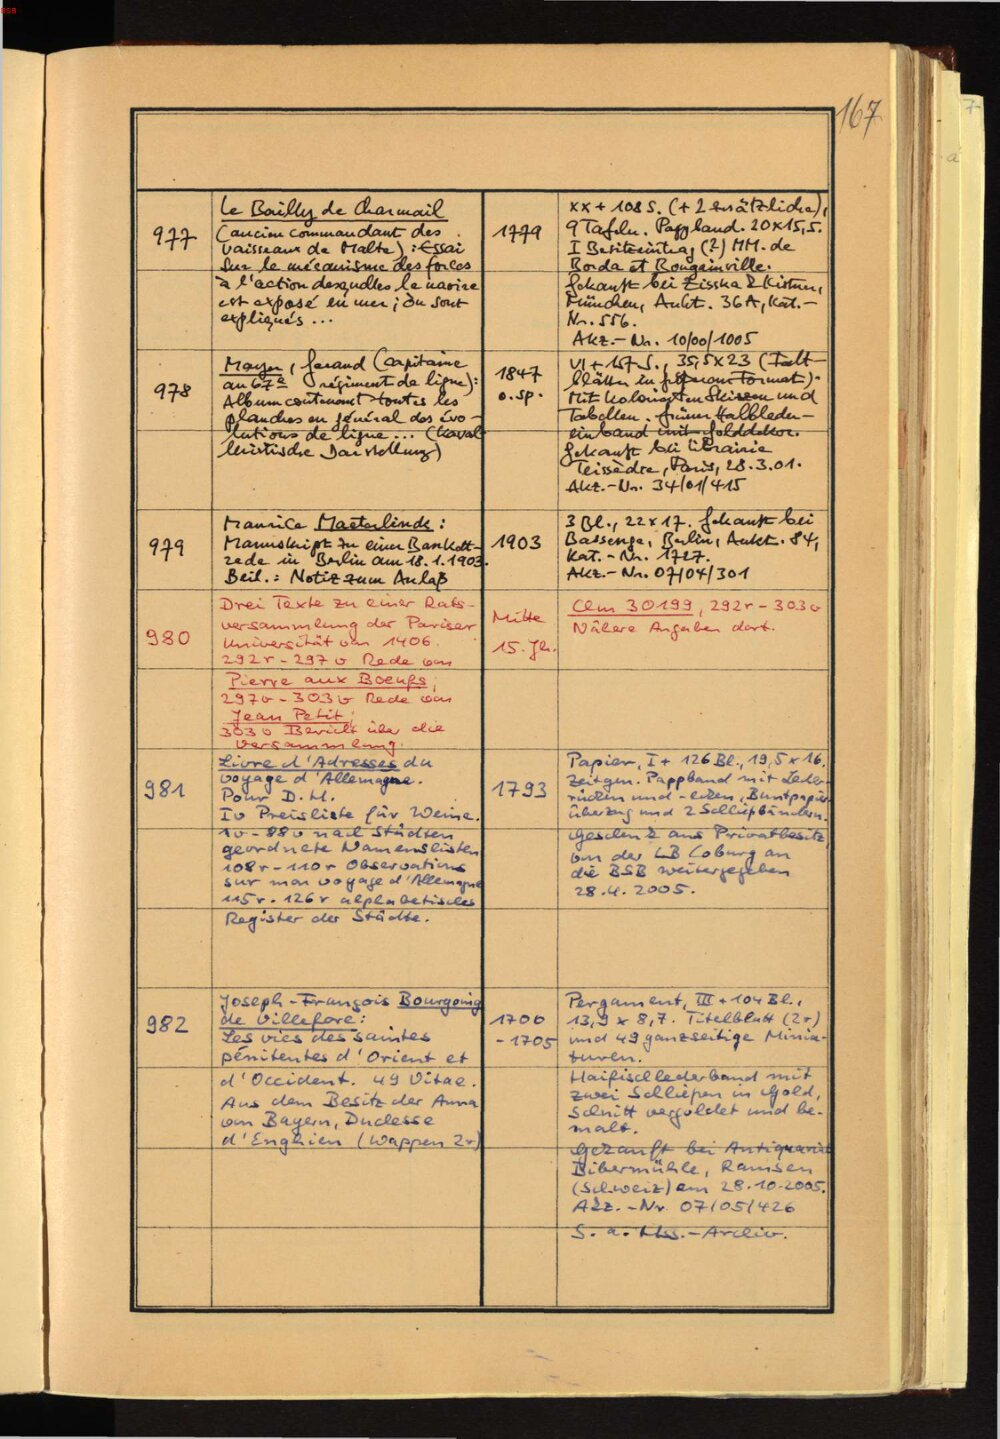 167
977
Le Bailly de Charmail
(ancien commandant des
vaisseaux de Malte): Essai
sur le mécanisme des forces
à l'action desquelles le navire
est exposé en mer; où sont
expliqués ...
1779
XX + 108 S. (+ 2 zusätzliche),
9 Tafeln. Pappband. 20x15,5.
I Besitzeintrag (?) MM. de
Borda et Bougainville.
Gekauft bei Zisska & Kistner,
München, Aukt. 36A, Kat.-
Nr. 556.
Akz.-Nr. 10/00/1005
978
(Capitaine
au 67e régiment de ligne):
Album contenant toutes les
planches en général des évo-
lutions de ligne ... (Kaval-
leristische Darstellung)
1847
o. Sp.
VI + 157 S., 35,5x23 (Falt-
blätter in Format).
Mit kolorierten Skizzen und
Tabellen. Grüner Halbleder-
einband mit Golddekor.
Gekauft bei Librairie
Teissèdre, Paris, 28.3.01.
Akz.-Nr. 34/01/415
979
Maurice Maeterlinck:
Manuskript zu einer Bankett-
rede in Berlin am 18.1.1903.
Beil.: Notiz zum Anlaß
1903
3 Bl., 22x17. Gekauft bei
Bassenge, Berlin, Aukt. 84,
Kat.-Nr. 1727.
Akz.-Nr. 07/04/301
980
Drei Texte zu einer Rats-
versammlung der Pariser
Universität von 1406.
292r-297v Rede von
Pierre aux Boeufs;
297v-303v Rede von
Jean Petit;
303v Bericht über die
Versammlung.
Mitte
15. Jh.
Clm 30199, 292r-303v
Nähere Angaben dort.
981
Livre d'Adresses du
voyage d'Allemagne.
Pour D. H.
Iv Preisliste für Weine.
1v-88v nach Städten
geordnete Namenslisten
108r-110r Observations
sur mon voyage d'Allemagne
115r-126r alphabetisches
Register der Städte.
1793
Papier, I + 126 Bl., 19,5 x 16.
Zeitgen. Pappband mit Leder-
rücken und -ecken, Buntpapier-
überzug und 2 Schließbändern.
Geschenk aus Privatbesitz,
von der LB Coburg an
die BSB weitergegeben
28.4.2005.
982
Joseph-François Bourgoing
de Villefore:
Les vies des saintes
pénitentes d'Orient et
d'Occident. 49 Vitae.
Aus dem Besitz der Anna
von Bayern, Duchesse
d'Enghien (Wappen 2r)
1700
-1705
Pergament, III + 104 Bl.,
13,9 x 8,7. Titelblatt (2r)
und 49 ganzseitige Minia-
turen.
Haifischlederband mit
zwei Schließen in Gold,
Schnitt vergoldet und be-
malt.
Gekauft bei Antiquariat
Bibermühle, Ramsen
(Schweiz) am 28.10.2005.
Akz.-Nr. 07/05/426
S. a. Hss.-Archiv.